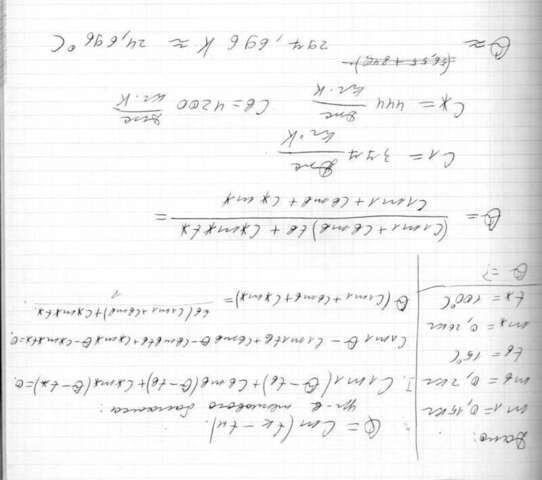 Дано:
m1=0,15кг
mв=0,2кг
tв=15°C
mx=0,26кг
tx=100°C
θ=?
Q=Cm(tк-tн).
ур-е теплового баланса:
C1m1(θ-tв)+Cвmв(θ-tв)+Cxmx(θ-tx)=0.
C1m1θ-C1m1tв+Cвmвθ-Cвmвtв+Cxmxθ-Cxmxtx=0.
θ(C1m1+Cвmв+Cxmx)=tв(C1m1+Cвmв)+Cxmxtx
θ=(C1m1+Cвmв)tв+Cxmxtx / C1m1+Cвmв+Cxmx =
C1=377 Дж/кг·K
Cx=444 Дж/кг·K Cв=4200 Дж/кг·K
θ≈ 297,696 K ≈ 24,696 °C